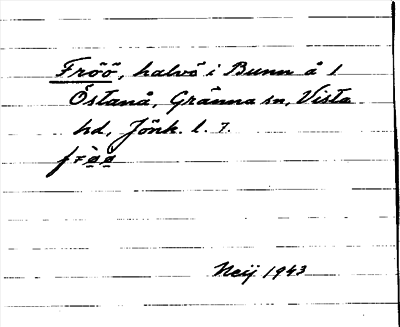 Fröö, halvö i Bunn å 1
Östanå, Gränna sn, Vista
hd, Jönk. l. 7.
frö̀ö
Neij 1943